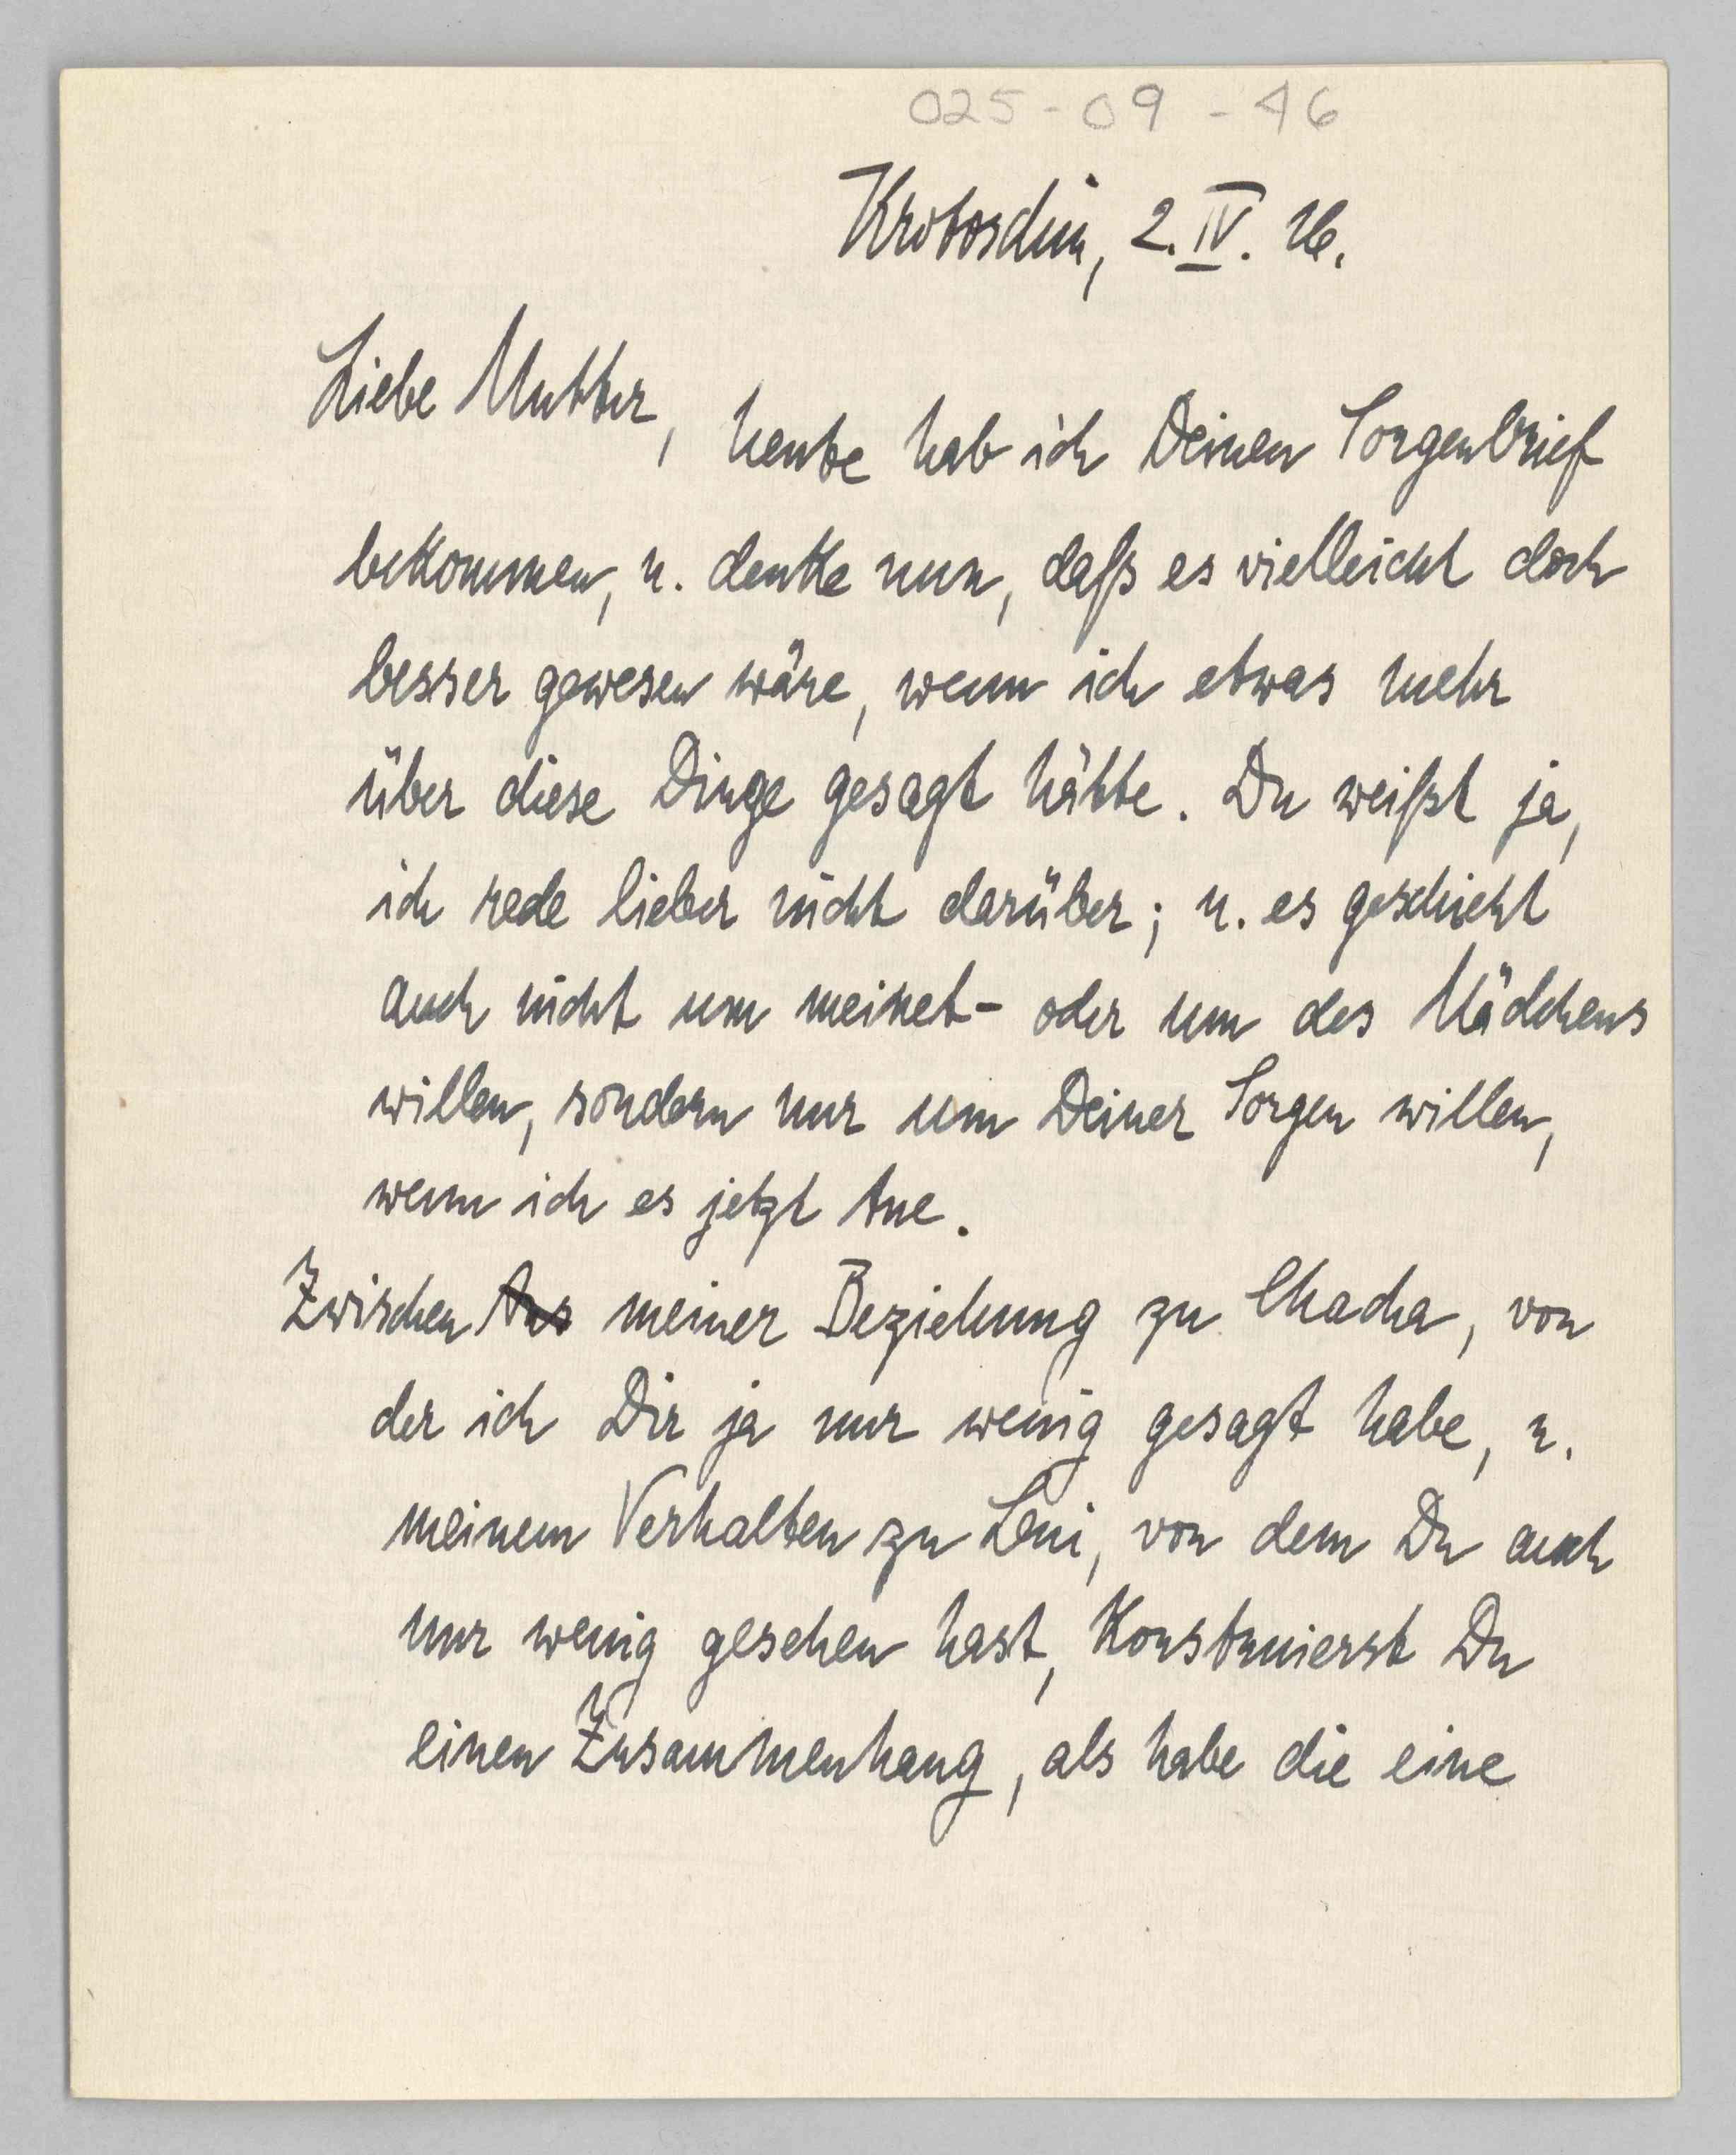 025-09-46
Krotoschin, 2. IV. 16.
Liebe Mutter,
heute hab ich Deinen Sorgenbrief
bekommen, u. denke nun, daß es vielleicht doch
besser gewesen wäre, wenn ich etwas mehr
über diese Dinge gesagt hätte. Du weißt ja,
ich rede lieber nicht darüber; u. es geschieht
auch nicht um meinet- oder um des Mädchens
willen, sondern nur um Deiner Sorgen willen,
wenn ich es jetzt tue.
Zwischen Aus meiner Beziehung zu Chacha, von
der ich Dir ja nur wenig gesagt habe, u.
meinem Verhalten zu Leni, von dem Du auch
nur wenig gesehen hast, konstruierst Du
einen Zusammenhang, als habe die eine